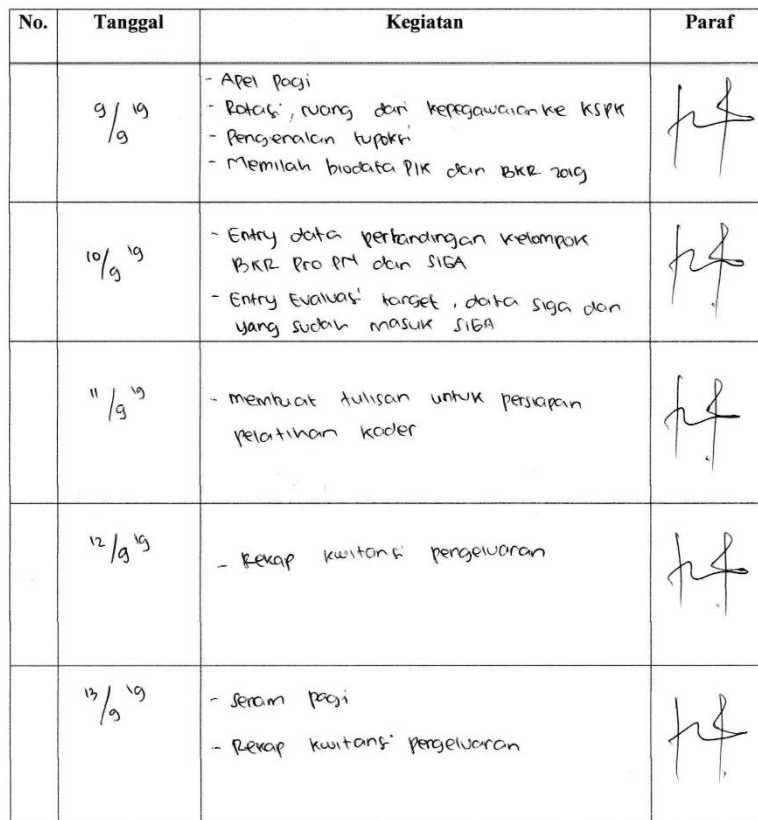 No. Tanggal Kegiatan Paraf
9/9 19
- Apel Pagi
- Rotasi, ruang dari kepegawaian ke KSPK
- Pengenalan tupoksi
- Memilah biodata PIK dan BKR 2019
10/9 19
- Entry data perbandingan kelompok
BKR Pro PN dan SIGA
- Entry Evaluasi target, data siga dan
yang sudah masuk SIGA
11/9 19
- membuat tulisan untuk persiapan
pelatihan kader
12/9 19
- Rekap kwitansi pengeluaran
13/9 19
- Senam pagi
- Rekap kwitansi pengeluaran